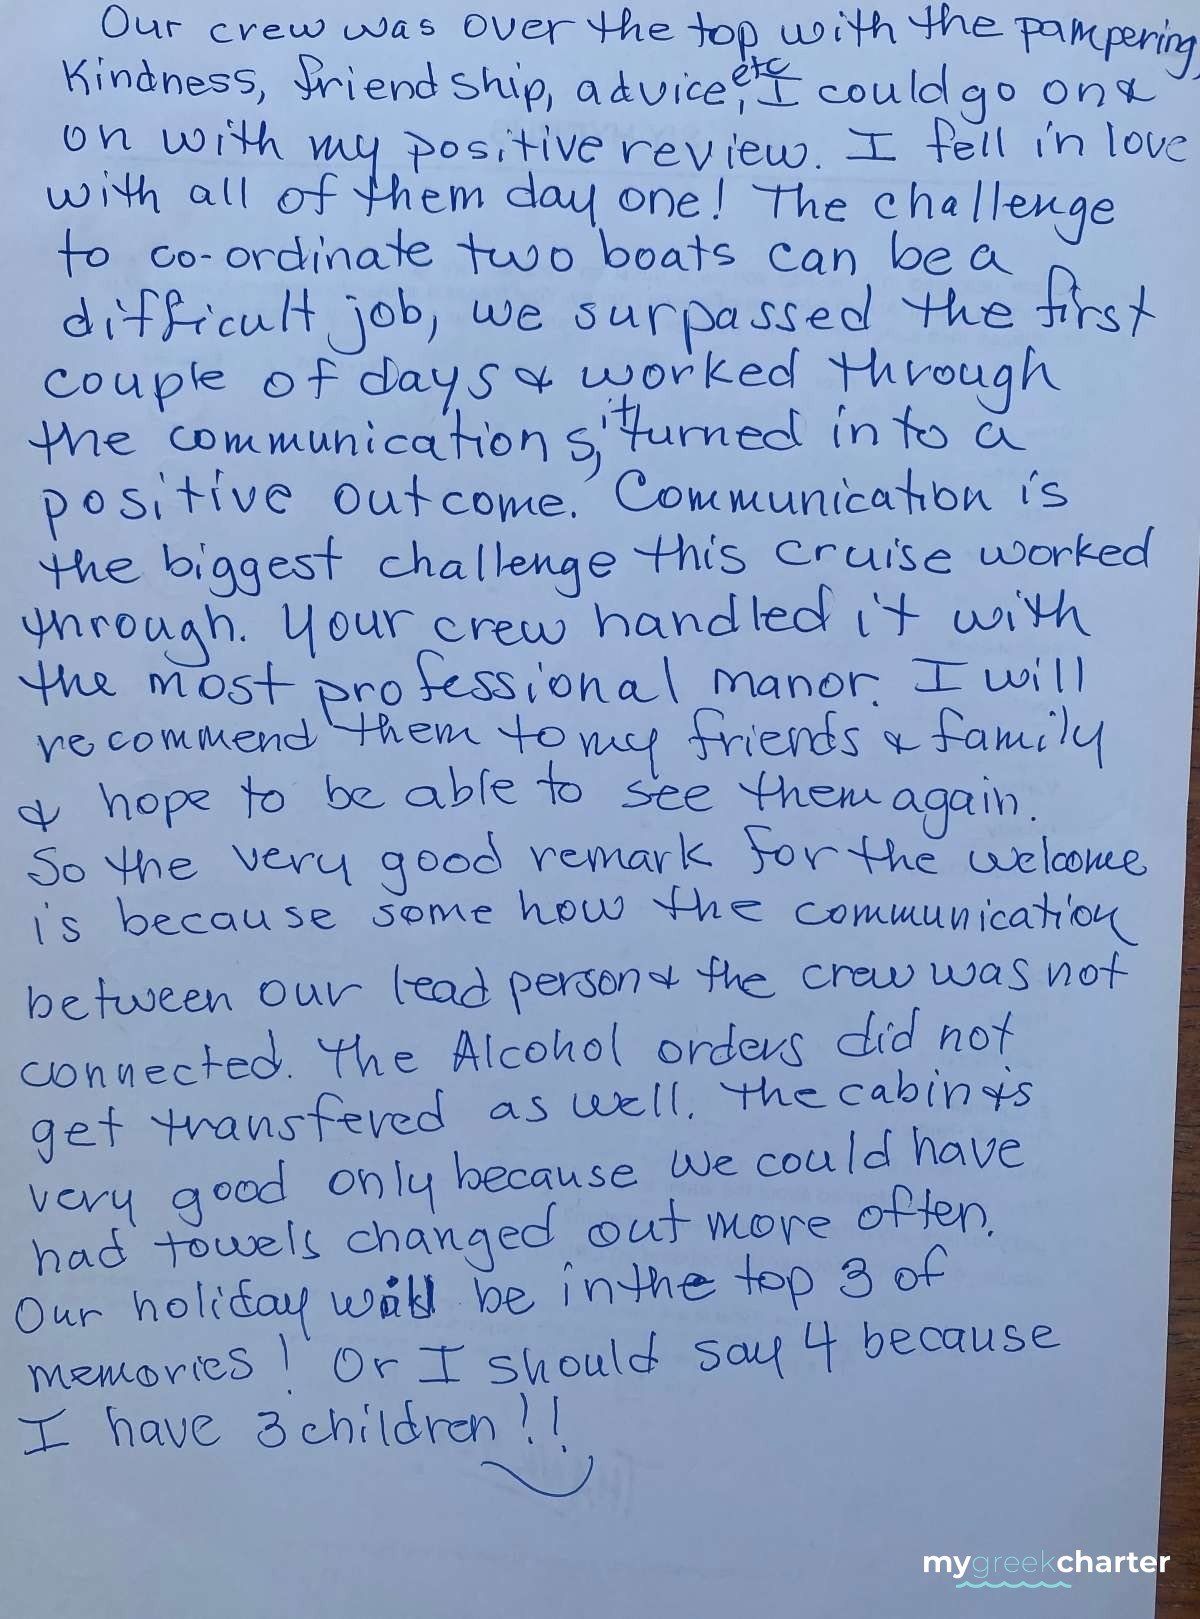 Our crew was over the top with the pampering,
Kindness, friendship, advice, etc, I could go on &
on with my positive review. I fell in love
with all of them day one! The challenge
to co-ordinate two boats can be a
difficult job, we surpassed the first
couple of days & worked through
the communications, it turned into a
positive outcome. Communication is
the biggest challenge this cruise worked
through. Your crew handled it with
the most professional manor. I will
recommend them to my friends & family
& hope to be able to see them again.
So the very good remark for the welcome
is because some how the communication
between our lead person & the crew was not
connected. The Alcohol orders did not
get transfered as well. The cabin is
very good only because we could have
had towels changed out more often.
Our holiday will be in the top 3 of
memories! Or I should say 4 because
I have 3 children!!
mygreekcharter